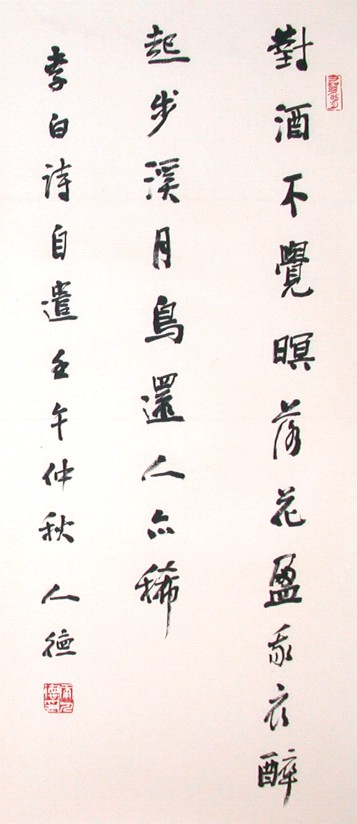 對酒不覺暝落花盈我衣醉
起步溪月鳥還人亦稀
李白詩自遣壬午仲秋人德